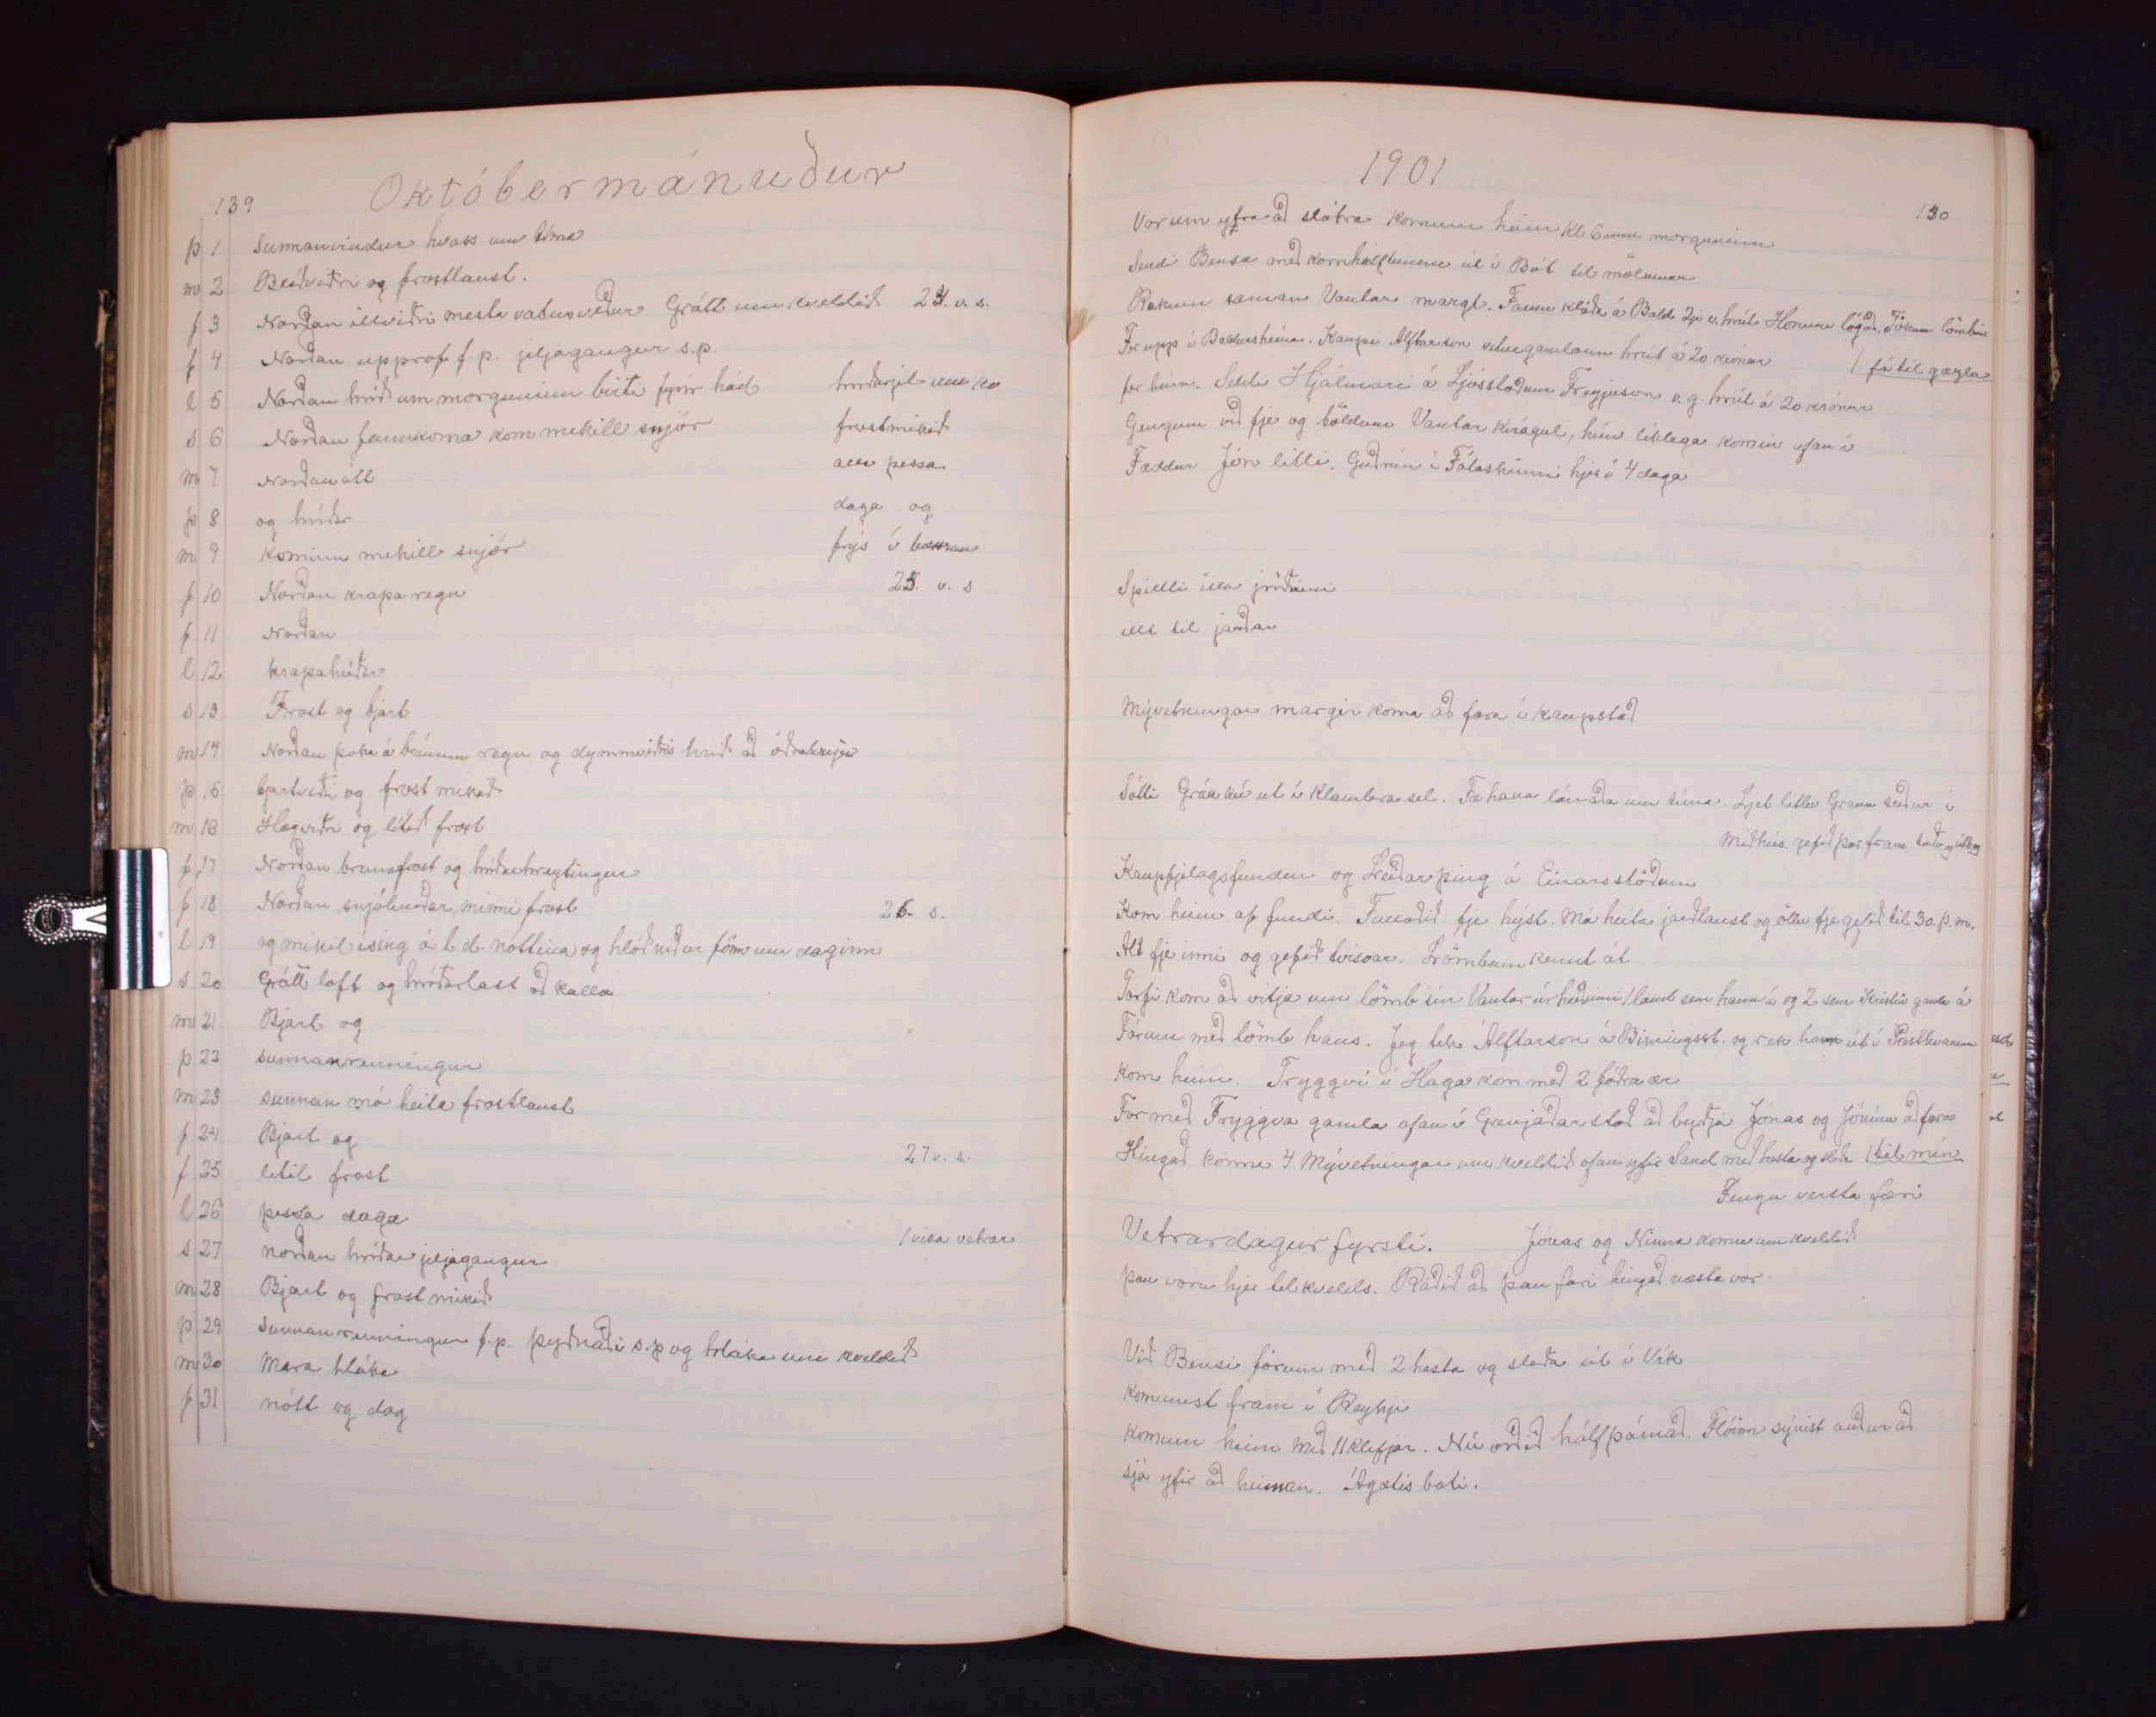 139
Októbermánuður
þ 1 Sunnanvindur hvass um tíma
m 2 Blíðviðri og frostlaust.
f 3 Norðan illviðri mesta vatnsveður Grátt um kveldið 23. v. s.
f 4 Norðan upprof f.p. jeljagangur s.p.
l 5 Norðan hríð um morguninn birti fyrir hád hríðarjel um
s 6 Norðan fannkoma kom mikill snjór frostmikið
m 7 Norðanátt alla þessa
þ 8 og hríðar daga og
m 9 kominn mikill snjór frýs í
f 10 Norðan krapa regn 25. v. s
f 11 Norðan
l 12 krapahríðar
s 13 Frost og bjart
m 14 Norðan þoka á brúnum regn og dymmviðris hríð að
þ 15 bjartviðri og frost mikið
m 16 Hægviðri og lítið frost
f 17 Norðan brunafrost og hríðarhreytingur
f 18 Norðan snjóhríðar, minni frost 26. s.
l 19 og mikil ísing á l.d. nóttina og hlóð niður fönn um daginn
s 20 Grátt loft og hríðarlast að kalla
m 21 Bjart og
þ 22 sunnanrenningur
m 23 sunnan má heita frostlaust
f 24 Bjart og
f 25 lítil frost 27 v. s.
l 26 þessa daga
s 27 norðan hríðar jeljagangur 1 vika vetrar
m 28 Bjart og frost mikið
þ 29 Sunnanrenningur f.p. þyðnaði s.p og hláka um kveldið
m 30 Mara hláka
f 31 nótt og dag
1901
130
Vorum yfra að slátra komum heim kl 6 um morguninn
Sendi Bensa með kornhálftunnu út í Bót til mölunar
Rákum saman Vantar margt. Fann kláða á Bald 2ja v. hrút Honum lógað. Tökum lömbin
Fór upp í Baldursheim. Kaupi Alftarson veturgamlann hrút á 20 krónur / fá til gæzlu
fer heim. Seldi Hjálmari á Ljósstöðum Freyjuson v.g. hrút á 20 krónur
Gengum við fje og töldum Vantar Krágul, hún líklega komin ofan í
Fæddur Jón litli. Guðrún í Fótaskinni hjer í 4 daga
Spillti illa jörðinni
illt til jarðar
Mývetningar margir koma að fara í kaupstað
Sótti Gráa kú út í Klambra sel. Fæ hana lánaða um tíma Ljet litlu Grána suður í
Miðhús. gefið þar fram
Kaupfjelagsfundur og Leiðarþing á Einarsstöðum
Kom heim af fundi. Fullorðið fje hýst. Má heita jarðlaust og öllu fje gefið til 30. þ. m.
Alt fje inni og gefið tvisvar. Lömbum kennt át
Torfi kom að vitja um lömb sín Vantar úr heiðinni 1 lamb sem hann á og 2 sem Kristín gamla á
Fórum með lömb hans. Jeg tek Álftarson á Birningsst. og rek hann út í Presthvamm
Kom heim. Tryggvi í Haga kom með 2 fóðra ær
Fór með Tryggva gamla ofan í Grenjaðarstað að byðja Jónas og Jónínu að fara
Hingað komu 4 Mývetningar um kveldið ofan yfir Sand með hesta og sleða / til mín
Fengu versta færi
Vetrardagur fyrsti. Jónas og Ninna komu um kveldið
Þau voru hjer til kvelds. Ráðið að þau fari hingað næsta vor
Við Bensi fórum með 2 hesta og sleða út í Vík
komumst fram í Reyki
Komum heim með 11 klifjar. Nú orðið hálfþánað. Flóinn sýnist auður að
sjá yfir að heiman. Ágætis bati.